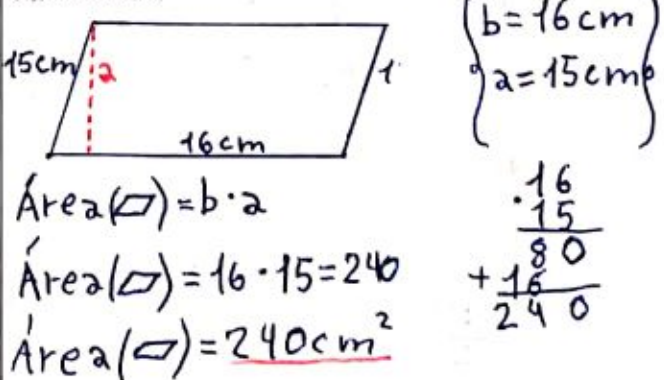 15cm
a
1
16cm
b=16cm
a=15cm
Área(▱)=b·a
Área(▱)=16·15=240
Área(▱)=240cm²
·16
15
80
+16
240